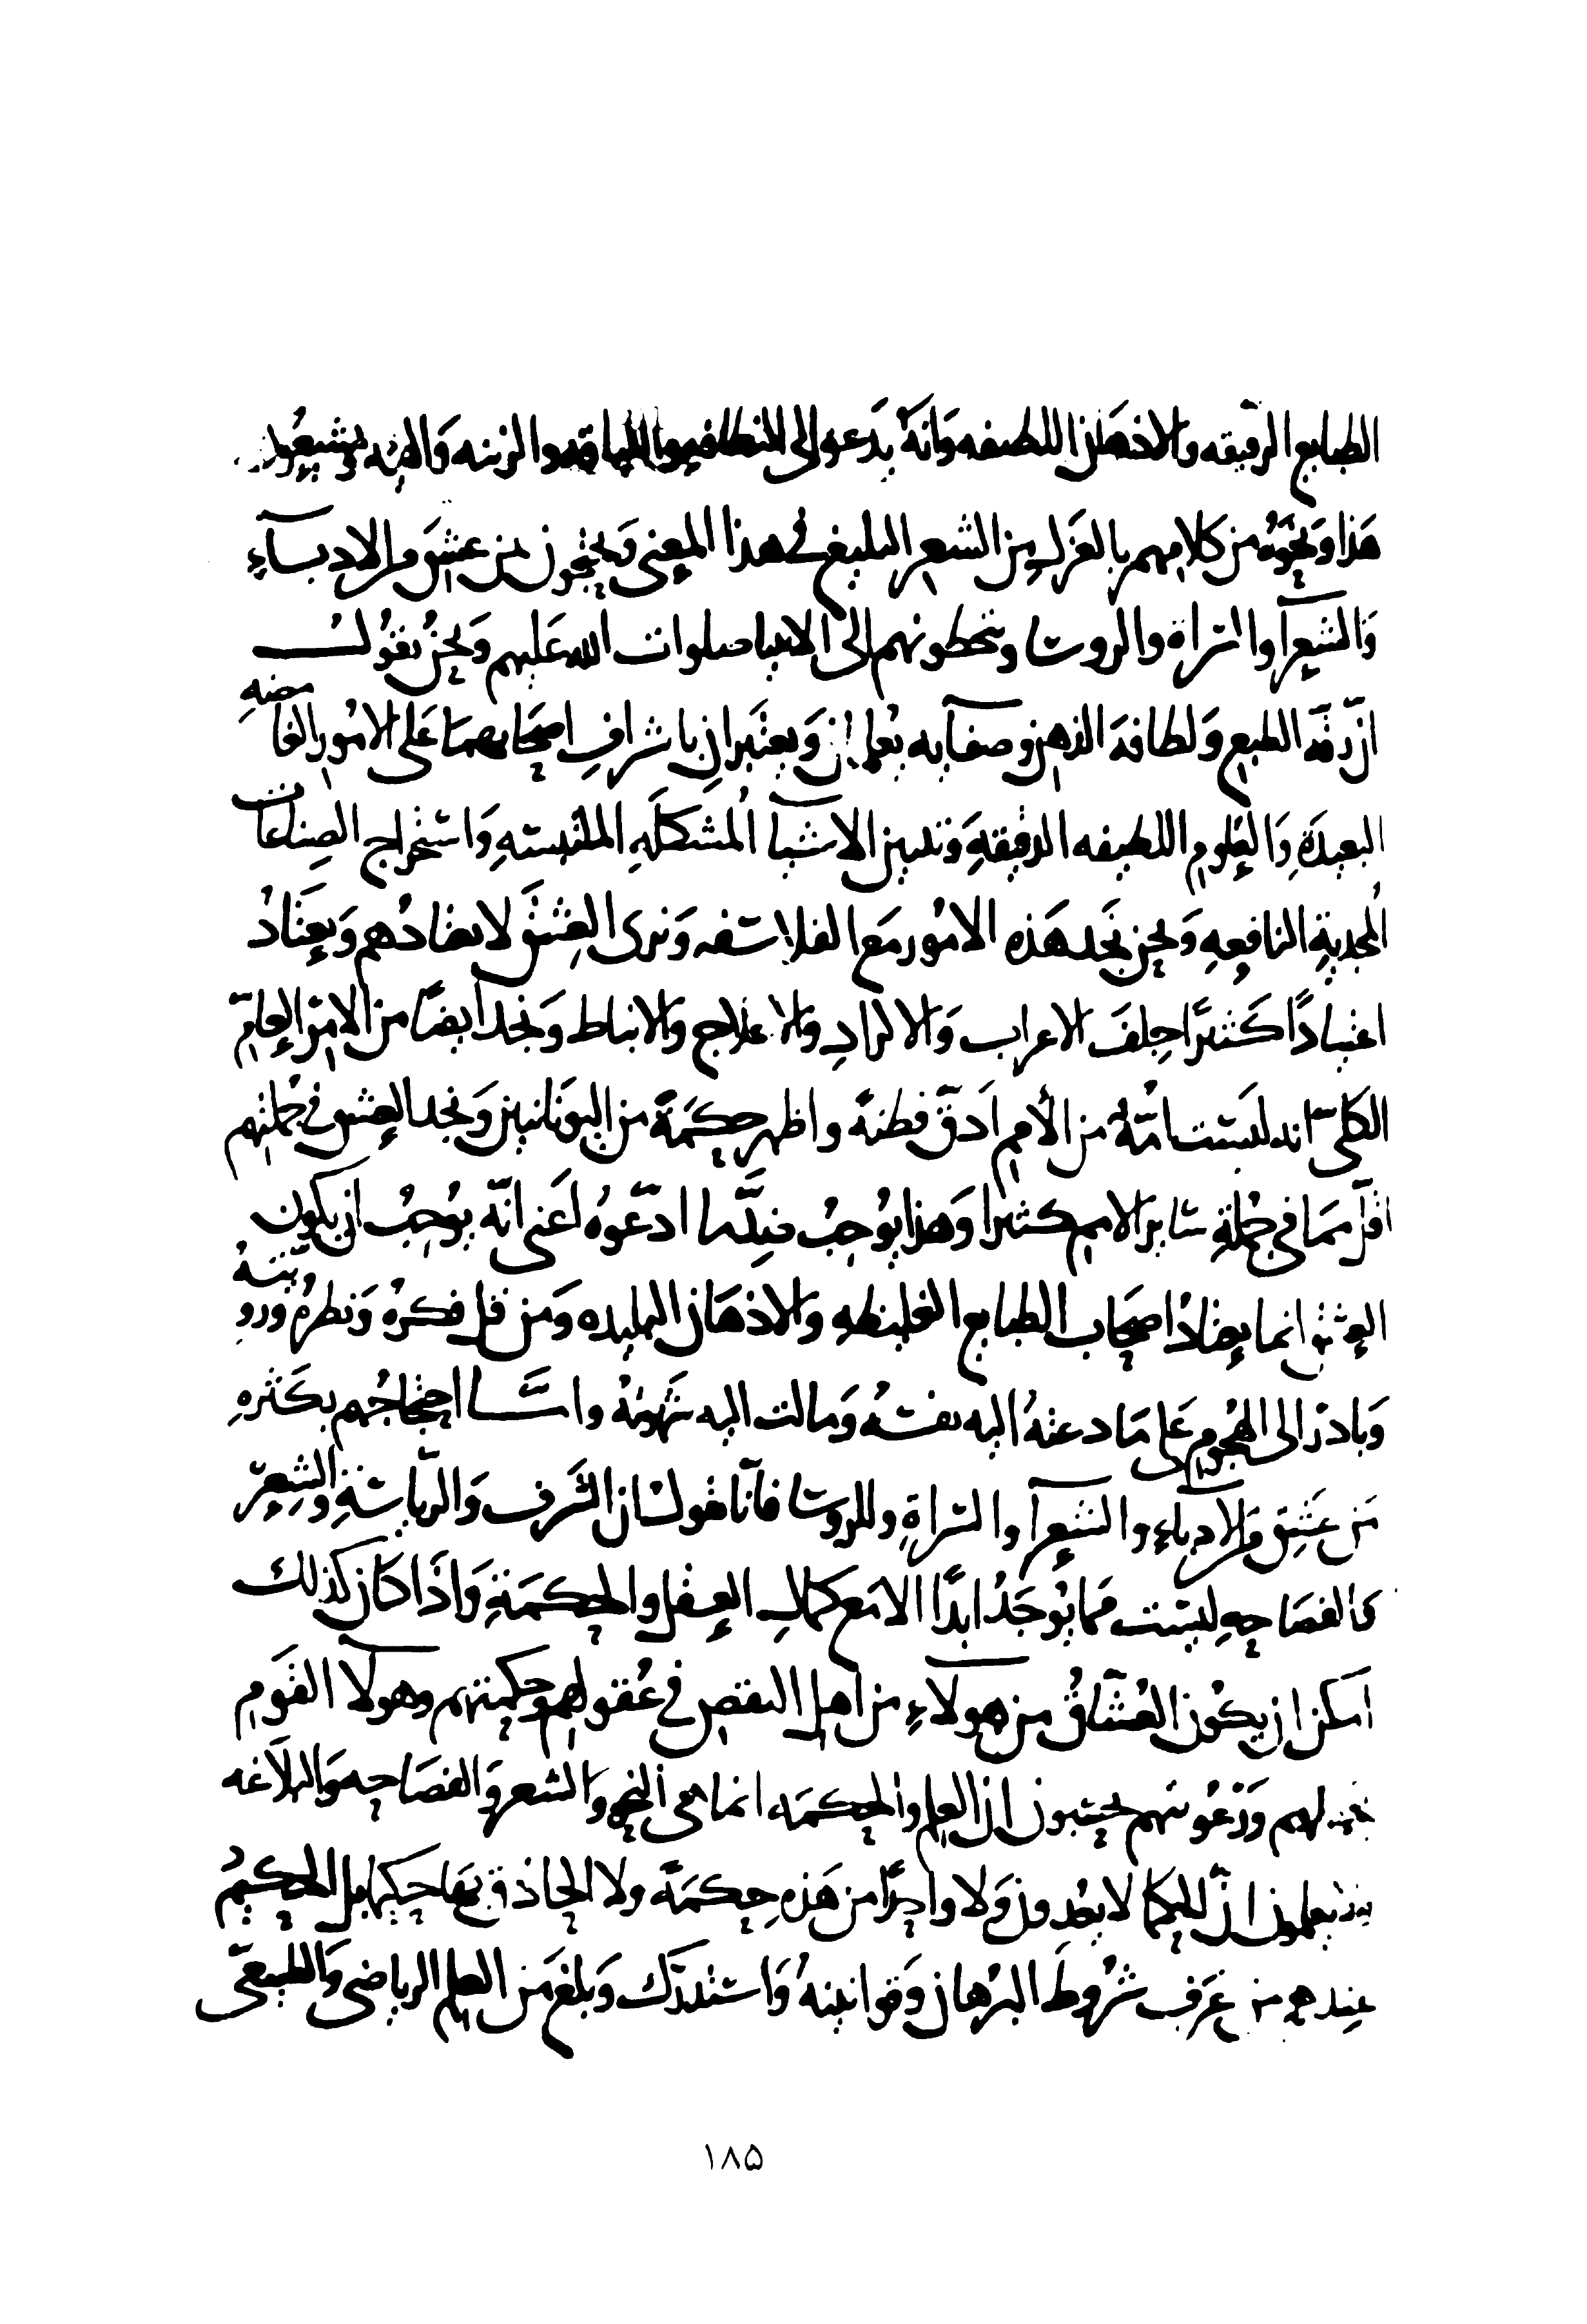 الطبايع الرقيقه والاذهان اللطيفه وانه يدعو الى النظافه واللباقه والزينه والهيه ويشيعون
هذا ونحوه من كلامهم بالغزل من الشعر البليغ في هذا المعنى ويحتجون بمن عشق من الادباء
والشعرآ والسراة والروسا ويتخطونهم الى الانبيا صلوات الله عليهم ونحن نقول
ان رقه الطبع ولطافة الذهن وصفآيه يعلمان ويعتبران باشراف اصحابهما على الامور الغامضه
البعيدة والعلوم اللطيفه الدقيقه وتبيين الاشيآ المشكله الملتبسه واستخراج الصناعات
المجدية النافعه ونحن نجد هذه الامور مع الفلاسفه ونرى العشق لا يعتادهم ويعتاد
اعتيادا كثيرا جلف الاعراب والاكراد والاعلاج والانباط ونجد ايضا من الامر العام
الكلى انه ليست امة من الامم ادق فطنة واظهر حكمة من اليونانيين ونجد العشق في جملتهم
اقل مما في جملة ساير الامم كثيرا وهذا يوجب ضد ما ادعوه اعنى انه يوجب ان يكون
العشق انما يعتاد اصحاب الطبايع الغليظه والاذهان البليده ومن قل فكره ونظره ورويته
وبادر الى الهجوم على ما دعته اليه نفسه ومالت اليه شهوته واما احتجاجهم بكثره
من عشق من الادباء والشعرآ والسراة والروسا فانا نقول ان الشرف والرياسة والشعر
والفصاحه ليست مما يوجد ابدا الا مع كمال العقل والحكمة واذا كان كذلك
امكن ان يكون العشاق من هولاء من اهل النقص في عقولهم وحكمتهم وهولآ القوم
لجهلهم ورعونتهم يحسبون ان العلم والحكمه انما هي النحو والشعر والفصاحه والبلاغه
يعلمون ان الحكما لا يعدون ولا واحدا من هذه حكمة ولا الحاذق بها حكيما بل الحكيم
عندهم من عرف شروط البرهان وقوانينه واستدرك وبلغ من العلم الرياضى والطبيعى
١٨٥